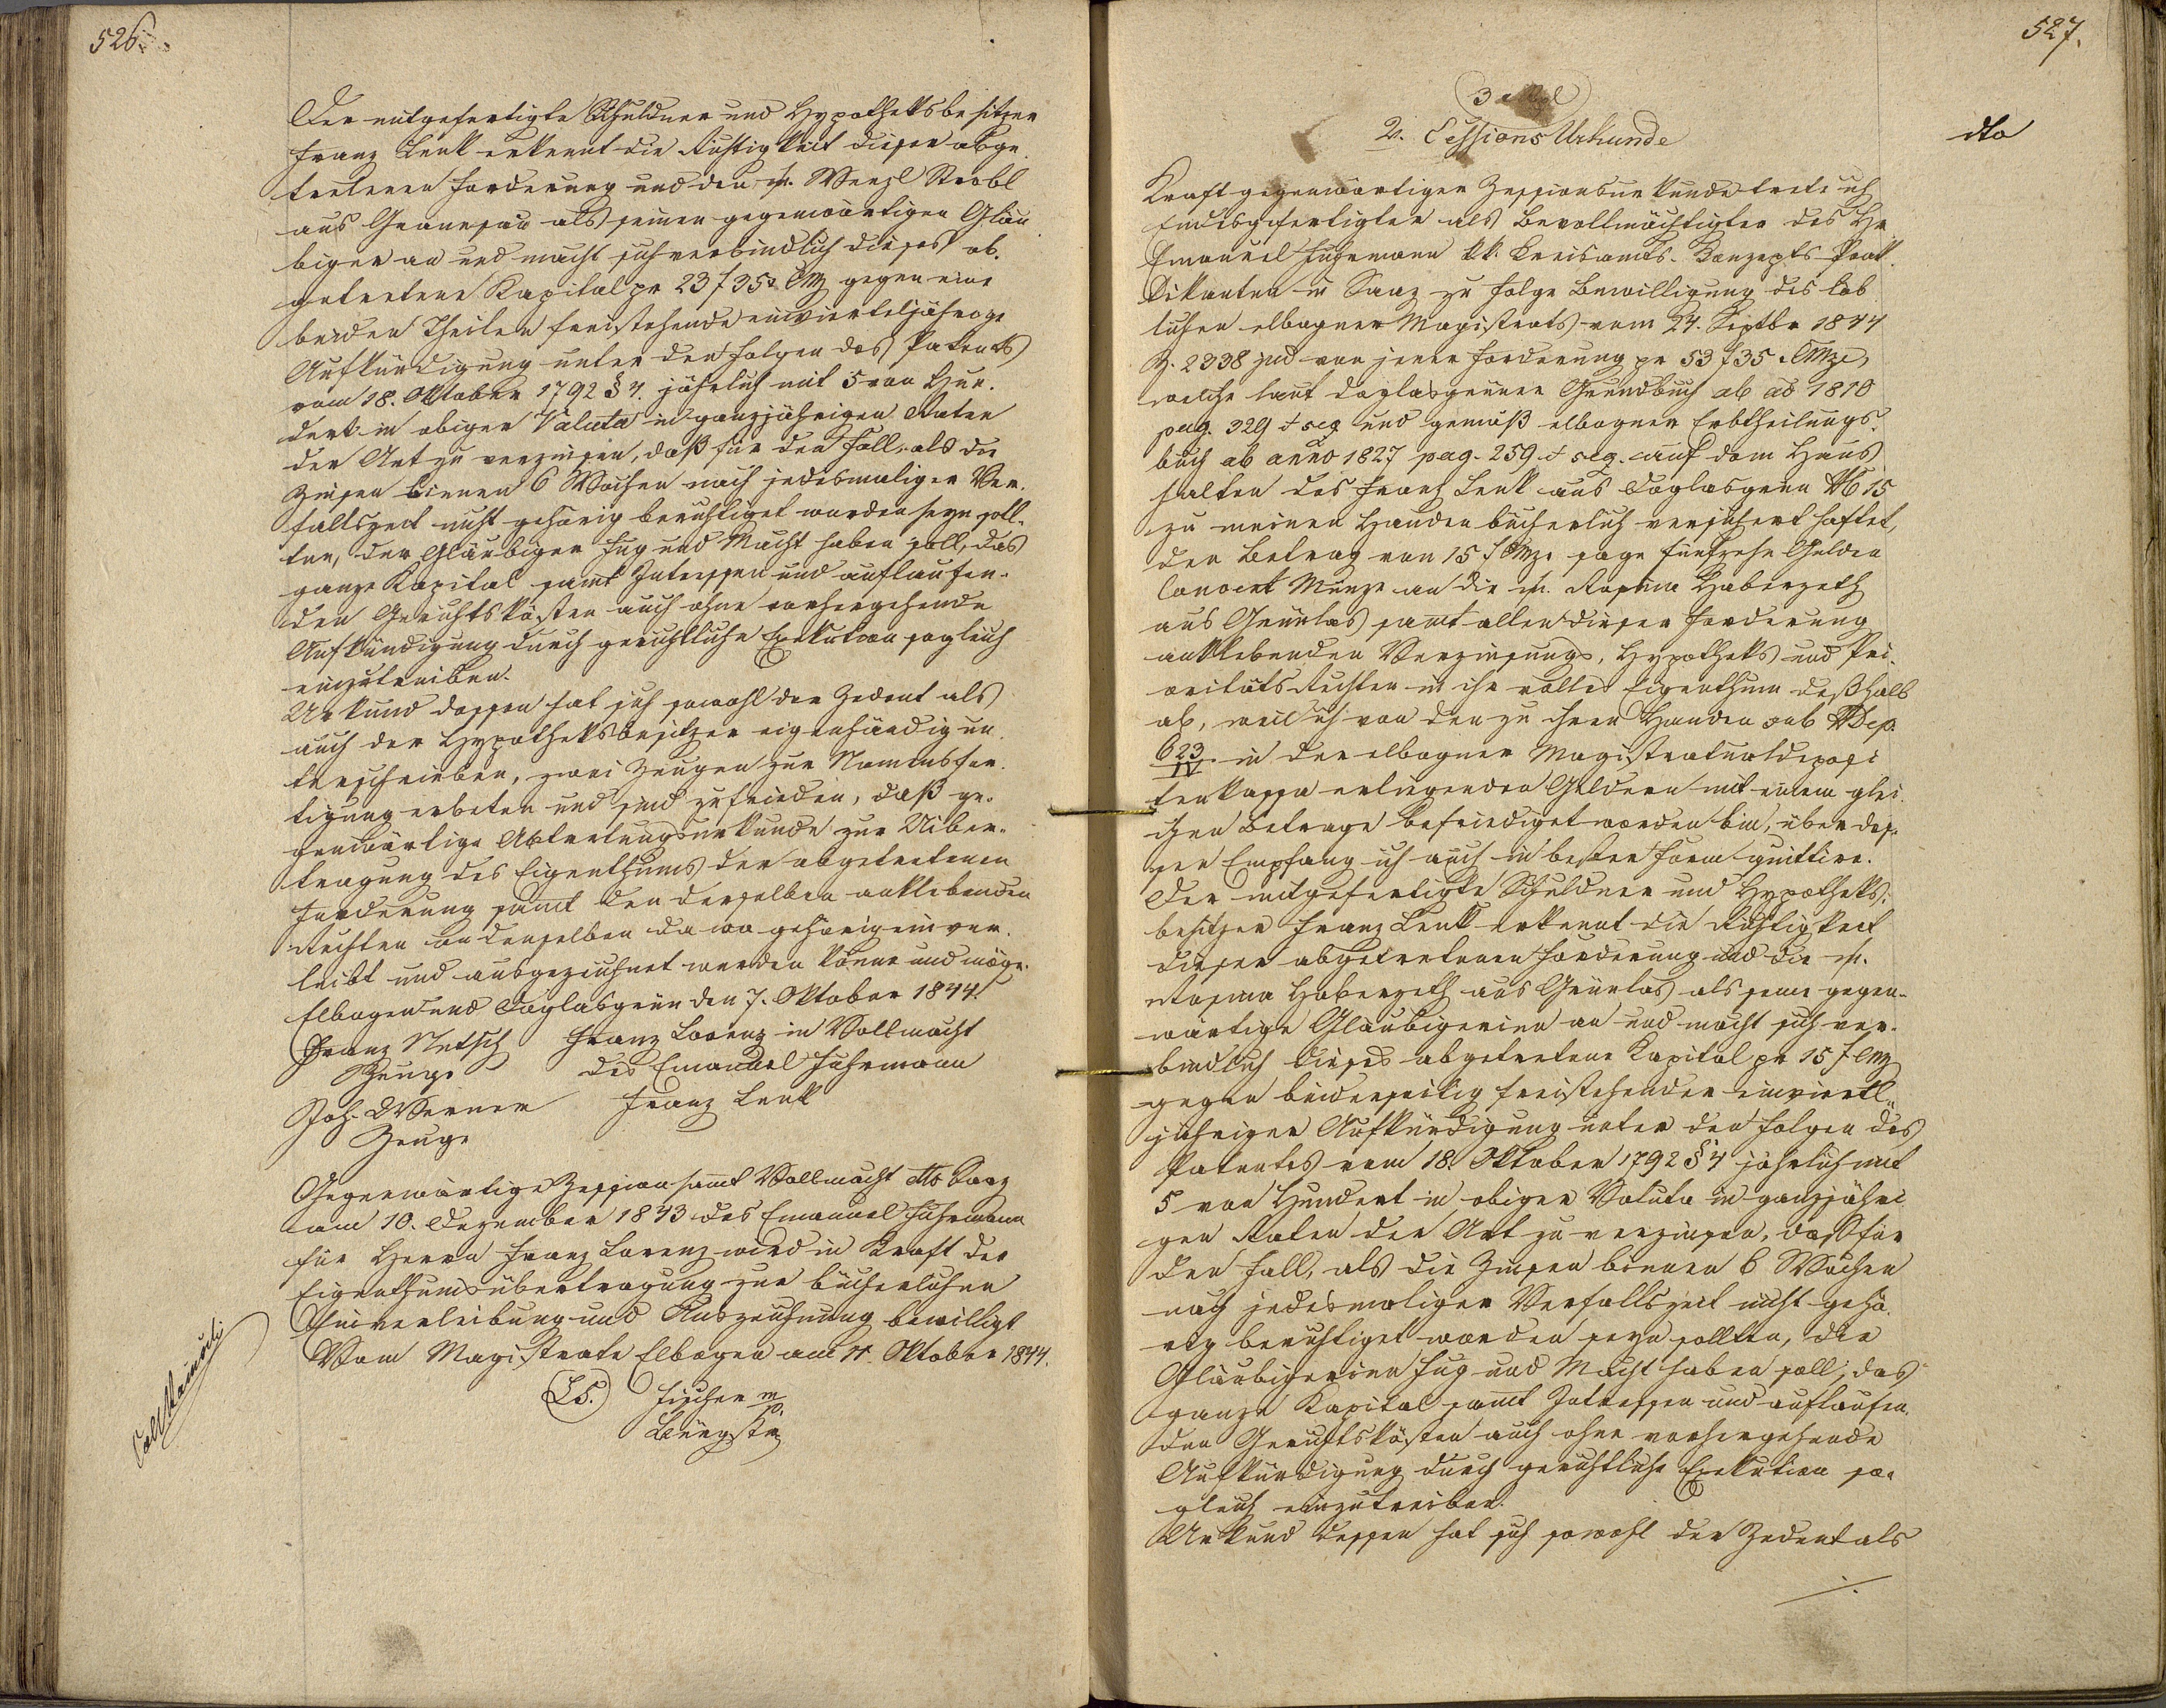 526.
Der mitgefertigte Schuldner und Hypotheksbesitzer
Franz Lenk erkennt die Richtigkeit dieser abge
tretenen Forderung und den Wenzl Strobl
aus Granesau als seinen gegenwärtigen Gläu
biger an und macht sich verbindlich dieses ab.
getretene Kapital pr 23 f 35 x CMz gegen eine
beiden Theilen freistehende einvierteljährige
Aufkündigung unter den Folgen des Patents
vom 18. Oktober 1792 § 4. jährlich mit 5 von Hun.
dert in obiger Valuta in ganzjährigen Raten
der Art zu verzinsen, daß für den Fall, als die
Zinsen binnen 6 Wochen nach jedesmaliger Ver.
fallszeit nicht gehörig berichtiget worden seyn soll.
ten, der Gläubiger Fug und Macht haben soll, das
ganze Kapital samt Interessen und auflaufen.
den Gerichtskösten auch ohne vorhergehende
Aufkündigung durch gerichtliche Exekution sogleich
einzutreiben.
Urkund dessen hat sich sowohl der Zedent als
auch der Hypotheksbesitzer eigenhändig un.
terschrieben, zwei Zeugen zur Namensfer.
tigung erbeten und sind zufrieden, daß ge.
genwärtige Abtretungsurkunde zur Uiber.
tragung des Eigenthums der abgetretenen
Forderung samt den derselben anklebenden
Rechten an denselben da wo gehörig einver.
leibt und ausgezeichnet werden könne und möge.
Elbogen und Doglasgrün den 7. Oktober 1844.
Franz Netsch Franz Lorenz in Vollmacht
Zeuge des Emanuel Fuhrmann
Joh. Werner Franz Lenk
Zeuge
Gegenwärtige Zession samt Vollmacht dto Saaz
am 10. Dezember 1843 des Emanuel Fuhrmann
für Herrn Franz Lorenz wird in Kraft der
Eigenthumsübertragung zur bücherlichen
Einverleibung und Auszeichnung bewilligt
Vom Magistrate Elbogen am 11. Oktober 1844.
L.S. Fischer m/p.
Bürgstr
527.
dto
2. Cessions Urkunde
Kraft gegenwärtiger Zessionsurkunde trete ich
Endesgefertigter als Bevollmächtigter des Hr
Emanuel Fuhrmann kk. Kreisamts-Konzepts-Prak.
tikanten in Saaz zu Folge Bewilligung des löb
lichen elbogner Magistrats vom 24. Septbr 1844
Z. 2338 jud von jener Forderung pr 53 f 35 x CMze,
welche laut doglasgrüner Grundbuch ab ao 1810
pag. 329 & seq und gemäß elbogner Erbtheilungs.
buch ab anno 1827 pag. 259 & seq. auf dem Haus
halten des Franz Lenk aus Doglasgrün N 15
zu meinen Handen bücherlich versichert haftet,
den Betrag von 15 f CMze sage fünfzehn Gulden
Convent Münze an die Rosina Haberzeth
aus Grünlas samt allen dieser Forderung
anklebenden Verzinsungs, Hypotheks und Pri.
oritätsrechten in ihr volles Eigenthum deßhalb
ab, weil ich von den zu ihren Handen sub N Dep.
623/IV in der elbogner Magistratualdeposi
tenkassa erliegenden Geldern mit einem glei.
chen Betrage befriediget worden bin, über des.
sen Empfang ich auch in bester Form quittire.
Der mitgefertigte Schuldner und Hypotheks.
besitzer Franz Lenk erkennt die Richtigkeit
dieser abgetretenen Forderung und die
Rosina Haberzeth aus Grünlas als seine gegen.
wärtige Gläubigerinn an und macht sich ver.
bindlich dieses abgetretene Kapital pr 15 f CMz
gegen beiderseitig freistehender einviertl.
jähriger Aufkündigung unter den Folgen des
Patentes vom 18. Oktober 1792 § 4 jährlich mit
5 von Hundert in obiger Valuta in ganzjähri
gen Raten der Art zu verzinsen, daß für
den Fall, als die Zinsen binnen 6 Wochen
nach jedesmaliger Verfallszeit nicht gehö.
rig berichtiget worden seyn sollten, die
Gläubigerinn Fug und Macht haben soll, das
ganze Kapital samt Interessen und auflaufen.
den Gerichtskösten auch ohne vorhergehende
Aufkündigung durch gerichtliche Exekution so.
gleich einzutreiben.
Urkund dessen hat sich sowohl der Zedent als